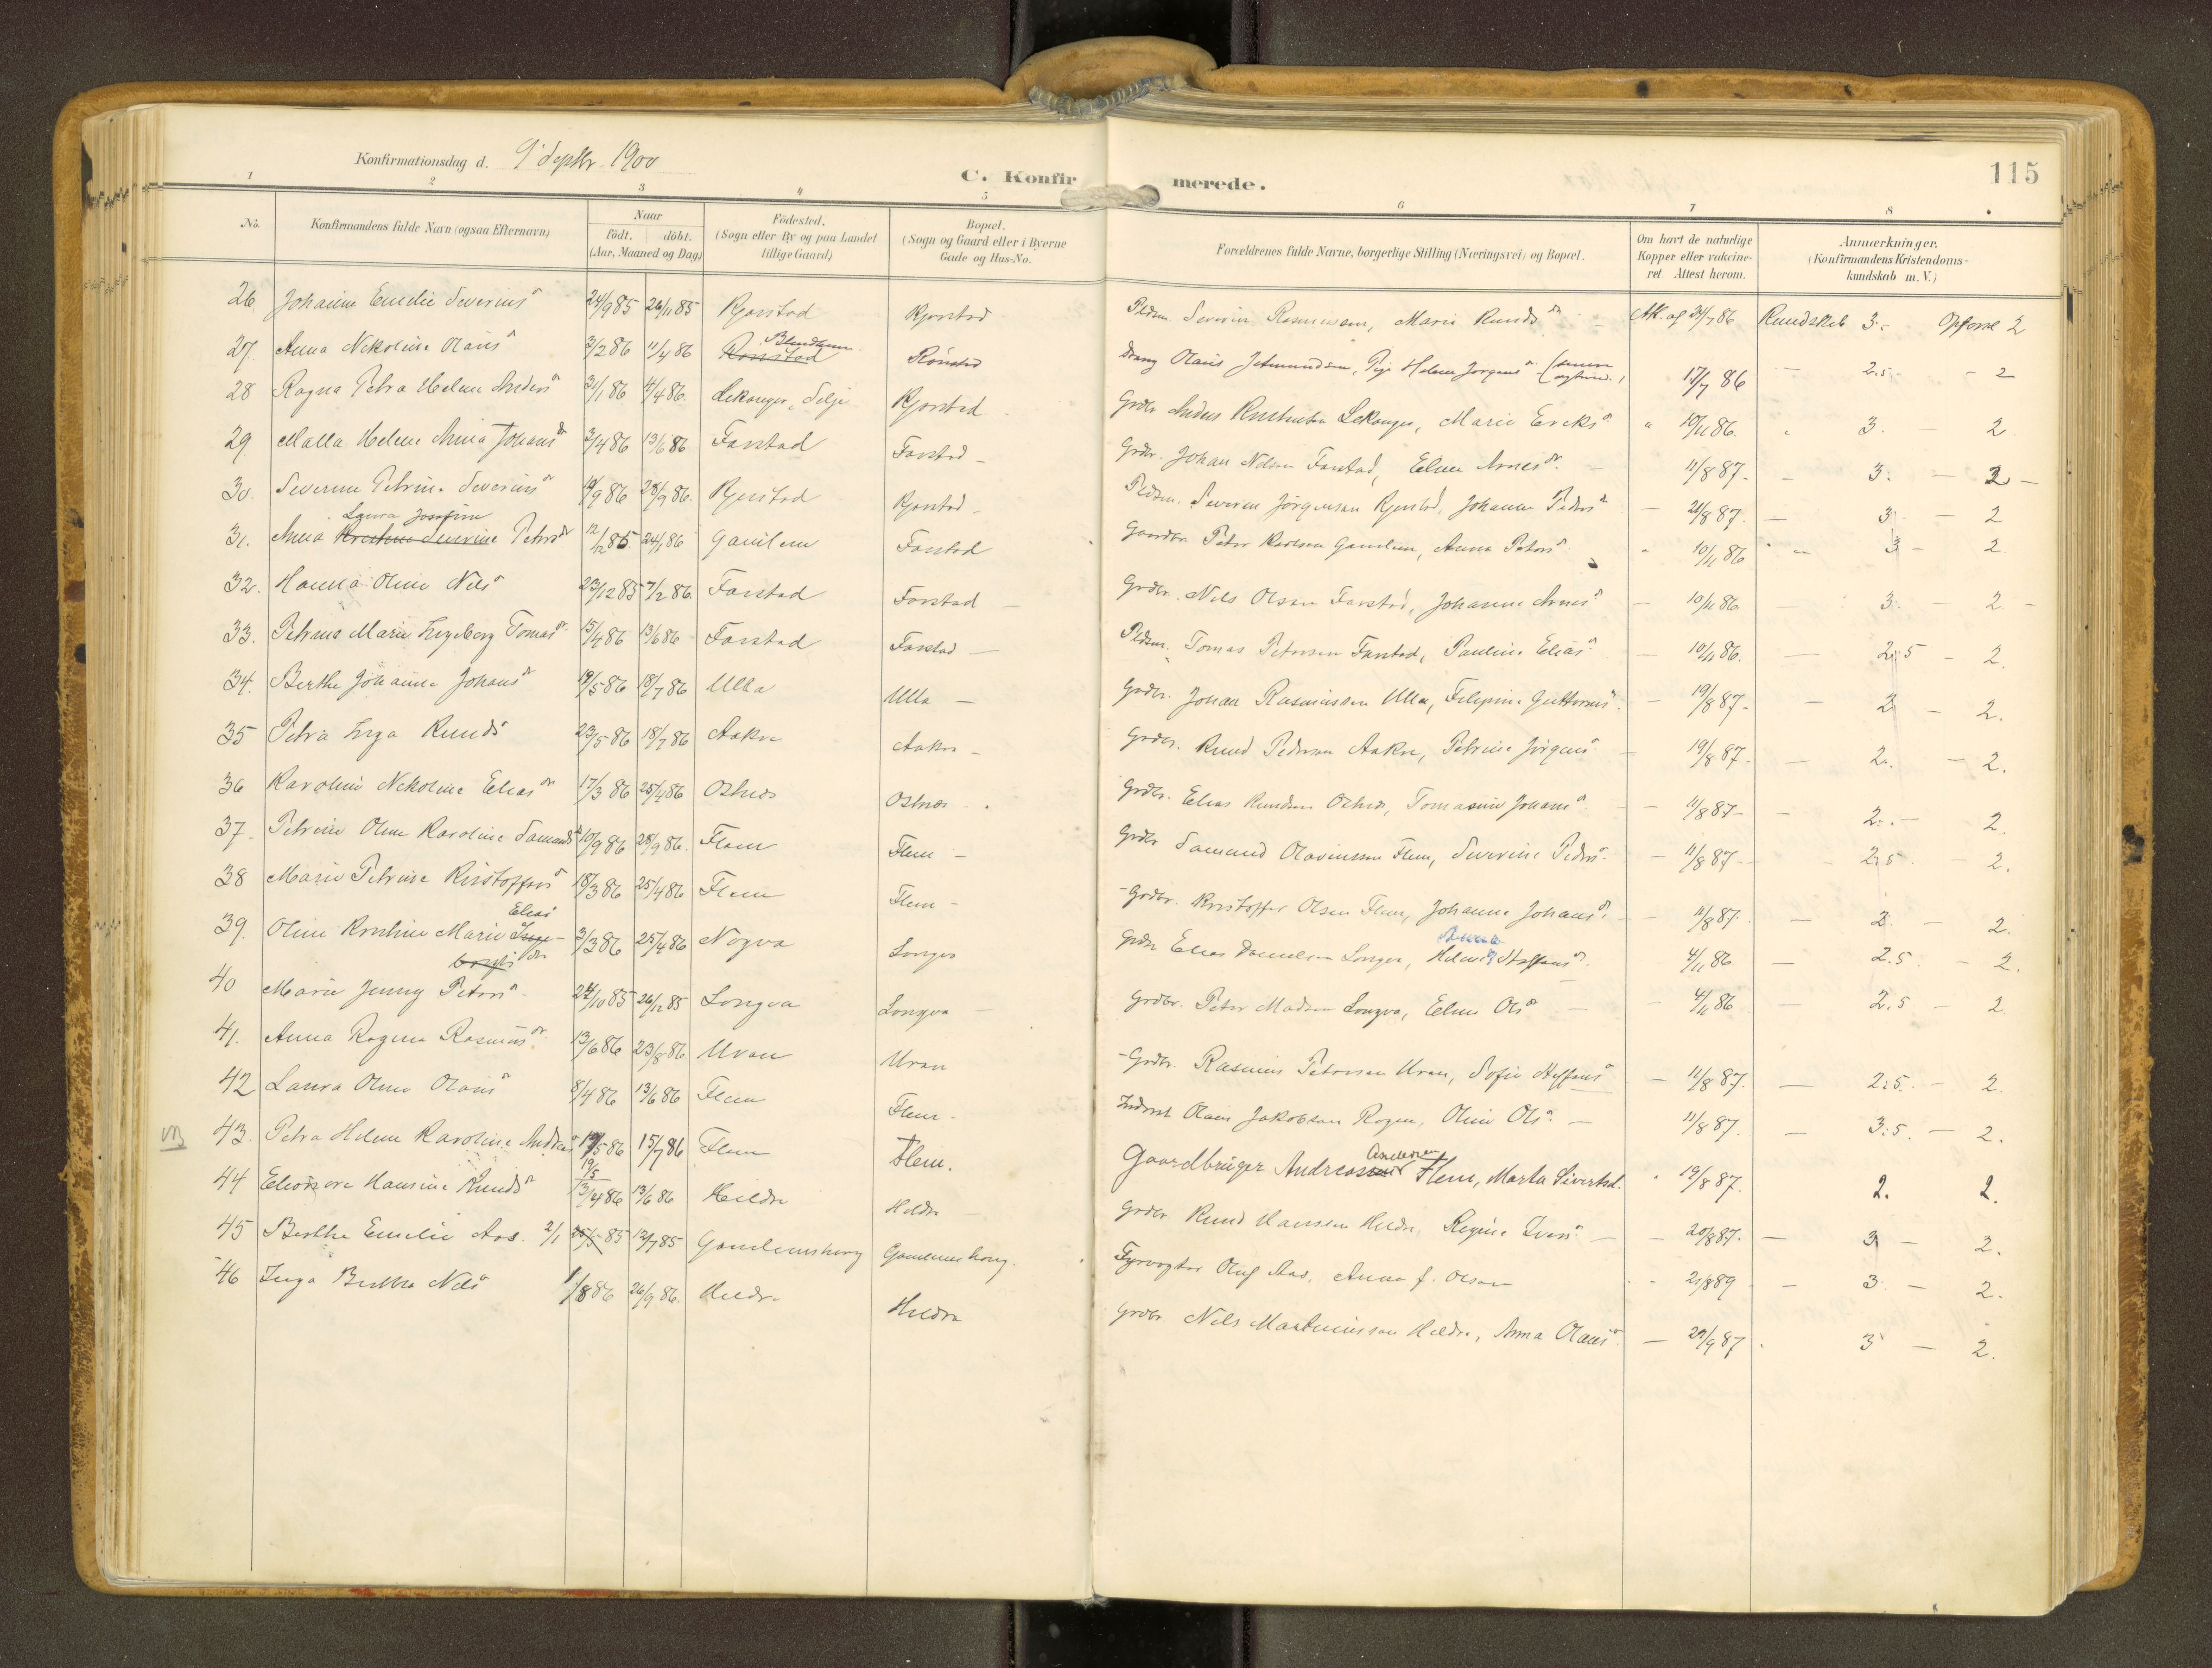 Konfirmationsdag d. 9' Septbr. 1900
C. Konfirmerede.
115
1 2 3 4 5 6 7 8
No. Konfirmandens fulde Navn (ogsaa Efternavn) Naar födt. döbt. (Aar, Maaned og Dag) Födested. (Sogn eller By og paa Landet tillige Gaard) Bopæl. (Sogn og Gaard eller i Byerne Gade og Hus-No. Forældrenes fulde Navne, borgerlige Stilling (Næringsvei) og Bopæl. Om havt de naturlige Kopper eller vakcineret. Attest herom. Anmærkninger. (Konfirmandens Kristendomskundskab m. V.)
26 Johanne Emelie Severins dr 24/9 85 26/11 85 Kjerstad Kjerstad Pldsm. Severin Rasmussen, Marie Knuds dr Att. af 24/7 86 Kundskab 3. Opførsel 2
27. Anna Nekoline Olaus 3/2 86 11/4 86 Rønstad Blindheim Rønstad Dreng Olaus Jetmundsen, Pige Helene Jørgens dr 17/7 86 2.5 - 2
28 Ragna Petra Helene Anders dr 31/1 86 4/4 86. Lekanger, Selje Kjerstad Grdbr. Anders Kristensen Lekanger, Marie Eriks dr 10/11 86. 3. - 2
29 Malla Helene Anna Johans dr 3/4 86 13/6 86 Farstad Farstad - Grdbr. Johan Nelsen Farstad, Eline Arnes dr. 11/8 87. - 3. - 2 -
30. Severine Petrine Severins dr 14/9 86 28/9 86. Kjerstad Kjerstad - Pldsm. Severin Jörgensen Kjerstad, Johanne Peders dr - 21/8 87. - 3 - 2
31. Anna Kristine Severine Laura Josefine Peters dr 12/12 85 24/1 86 Gamlem Farstad Gaardbr. Peter Karlsen Gamlem, Anna Peters dr 10/11 86 3 - 2
32. Hanna Oline Nils dr 23/12 85 7/2 86. Farstad Farstad - Grdbr. Nils Olsen Farstad, Johanne Arnes dr - 10/11 86 3. - 2 -
33. Petrine Marie Ingeborg Tomas dr 15/4 86 13/6 86 Farstad Farstad - Pldsm. Tomas Petersen Farstad, Pauline Elias dr - 10/11 86. - 2.5 - 2.
34. Berthe Johanne Johans dr 19/5 86 18/7 86 Ulla Ulla - Grdbr. Johan Rasmussen Ulla, Filipine Guttorms dr. - 19/8 87. - 3 - 2.
35 Petra Inga Knuds dr 23/5 86 18/7 86 Aakre Aakre - Grdbr. Knud Pedersen Aakre, Petrine Jörgens dr - 19/8 87. - 2. - 2.
36 Karoline Nekoline Elias dr 17/3 86 25/4 86 Ostnes Ostnes Grdbr. Elias Knudsen Ostnes, Tomasine Johans dr - 11/8 87 - 2. - 2.
37. Petrine Oline Karoline Samunds dr 10/9 86 28/9 86. Flem Flem - Grdbr Samund Olavinssen Flem, Severine Peders dr - 11/8 87 - 2.5 2.
38 Marie Petrine Kristoffers dr 18/3 86 25/4 86 Flem Flem - Grdbr. Kristoffer Olsen Flem, Johanne Johans dr. - 11/8 87. - 2 - 2.
39. Oline Kristine Marie Elias Inge-
brigts dr 3/3 86 25/4 86 Nogva Longva Grdbr Elias Danielsen Longva, Helene Steffens dr. 4/11 86 - 2.5 - 2.
40 Marie Jenny Peters dr. 24/10 85 26/12 85 Longva Longva Grdbr. Peter Madsen Longva, Eline Ols dr - 4/11 86 - 2.5 - 2
41. Anna Ragna Rasmus dr. 13/6 86 23/8 86. Uran Uran Grdbr. Rasmus Petersen Uran, Sofie Steffens dr - 11/8 87. - 2.5. - 2.
42 Laura Oline Olaus dr 8/4 86 13/6 86 Flem Flem - Inderst Olaus Jakobsen Rogne, Oline Ols dr. - 11/8 87. - 3.5. - 2.
NB 43. Petra Helene Karoline Andreas dr 19/5 86 15/7 86 Flem Flem. Gaardbruger Andreas Andersen Flem, Marta Sivertsd. 19/8 87. 2. 2.
19/5
44 Eleonore Hansine Knuds dr 13/4 86 13/6 86 Hildre Hildre Grdbr Knud Hanssen Hildre, Regine Ivers dr - - 20/8 87. - 3 - 2.
45 Berthe Emelie Aas. 2/1 25/5 85 12/7 85 Gamlemshaug Gamlemshaug. Fyrvogter Oluf Aas, Anna f. Olsen 21/8 89 - 3 - 2.
46 Inga Berthe Nils dr 1/8 86 26/9 86. Hildre Hildre Grdbr Nils Martinussen Hildre, Anna Olaus dr. - 29/9 87 3 - 2.